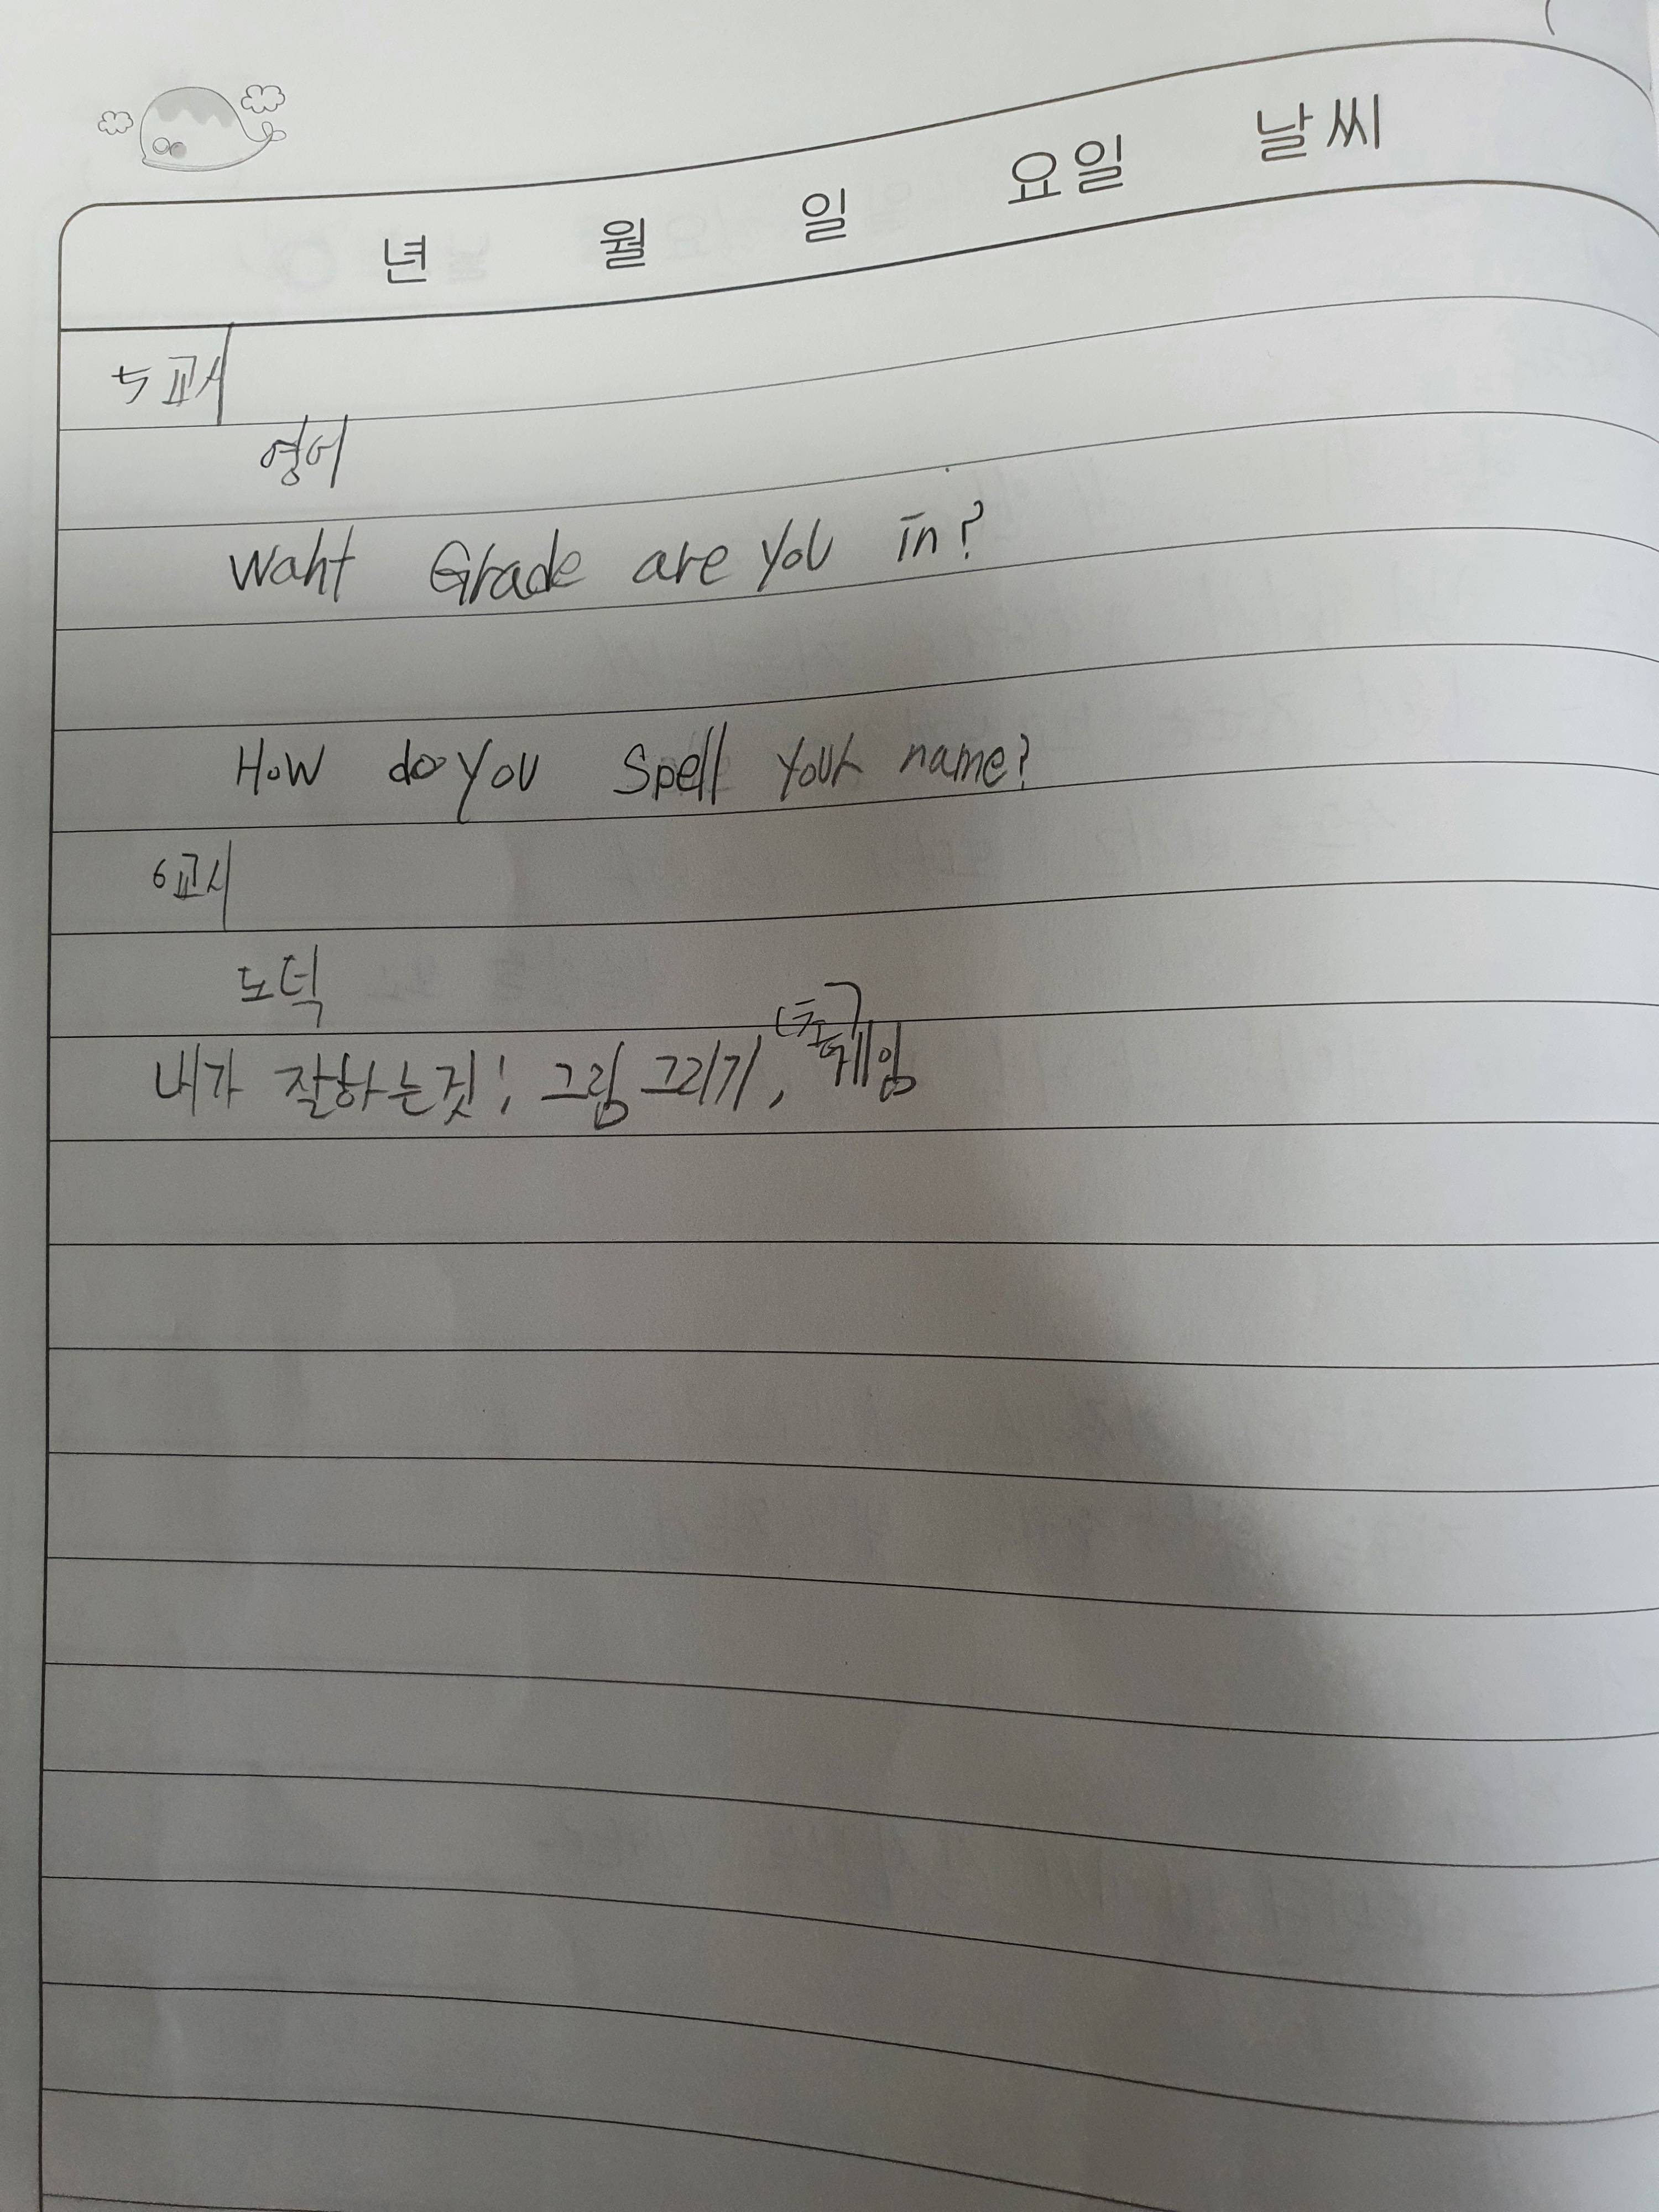 년 월 일 요일 날씨
5교시
영어
Waht Grade are you in?
How do you spell your name?
6교시
도덕
내가 잘하는것: 그림 그리기, 게임